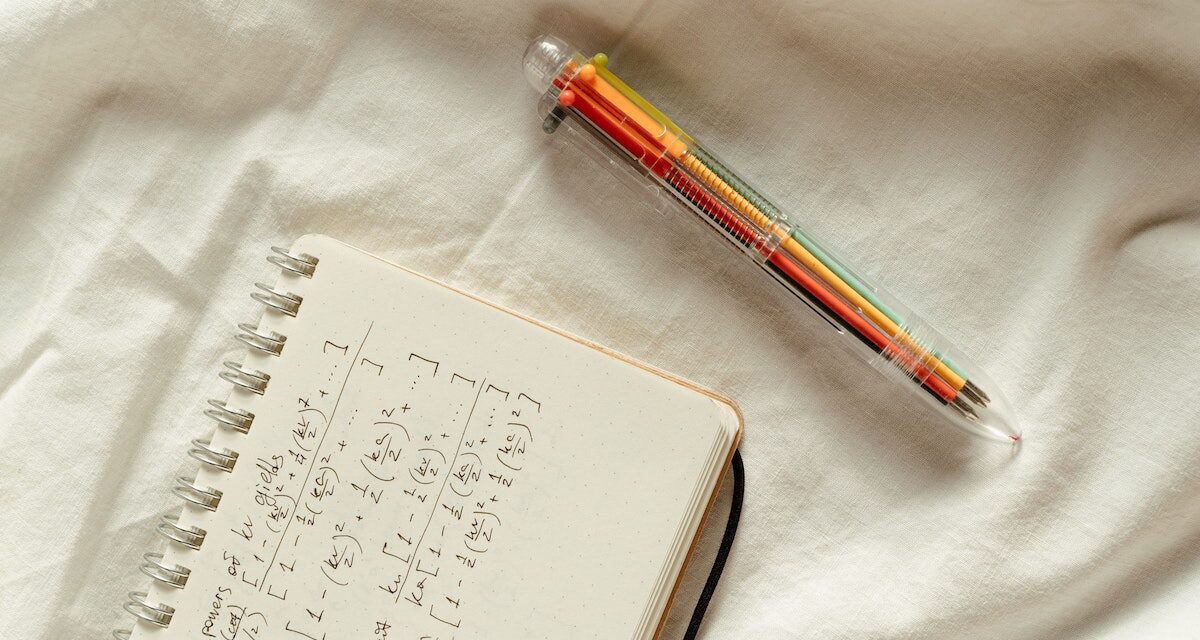 powers of kr yields
[1 - (kr/2)² + 1/4 (kr/2)⁷ + ... ]
[1 - 1/2 (ka/2)² + ... ]
[1 - (kr/2)² + 1/2 (ka/2)² + ... ]
kr [1 - 1/2 (kr/2)² + ... ]
ka [1 - 1/2 (ka/2)² + ... ]
[1 - 1/2 (kr/2)² + 1/2 (ka/2)² ]